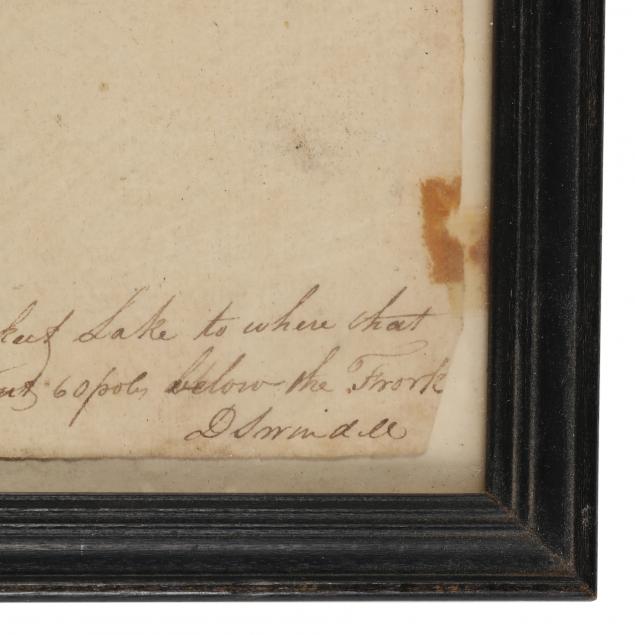 Lake to where that
60 pols below the Frork
D Swindell